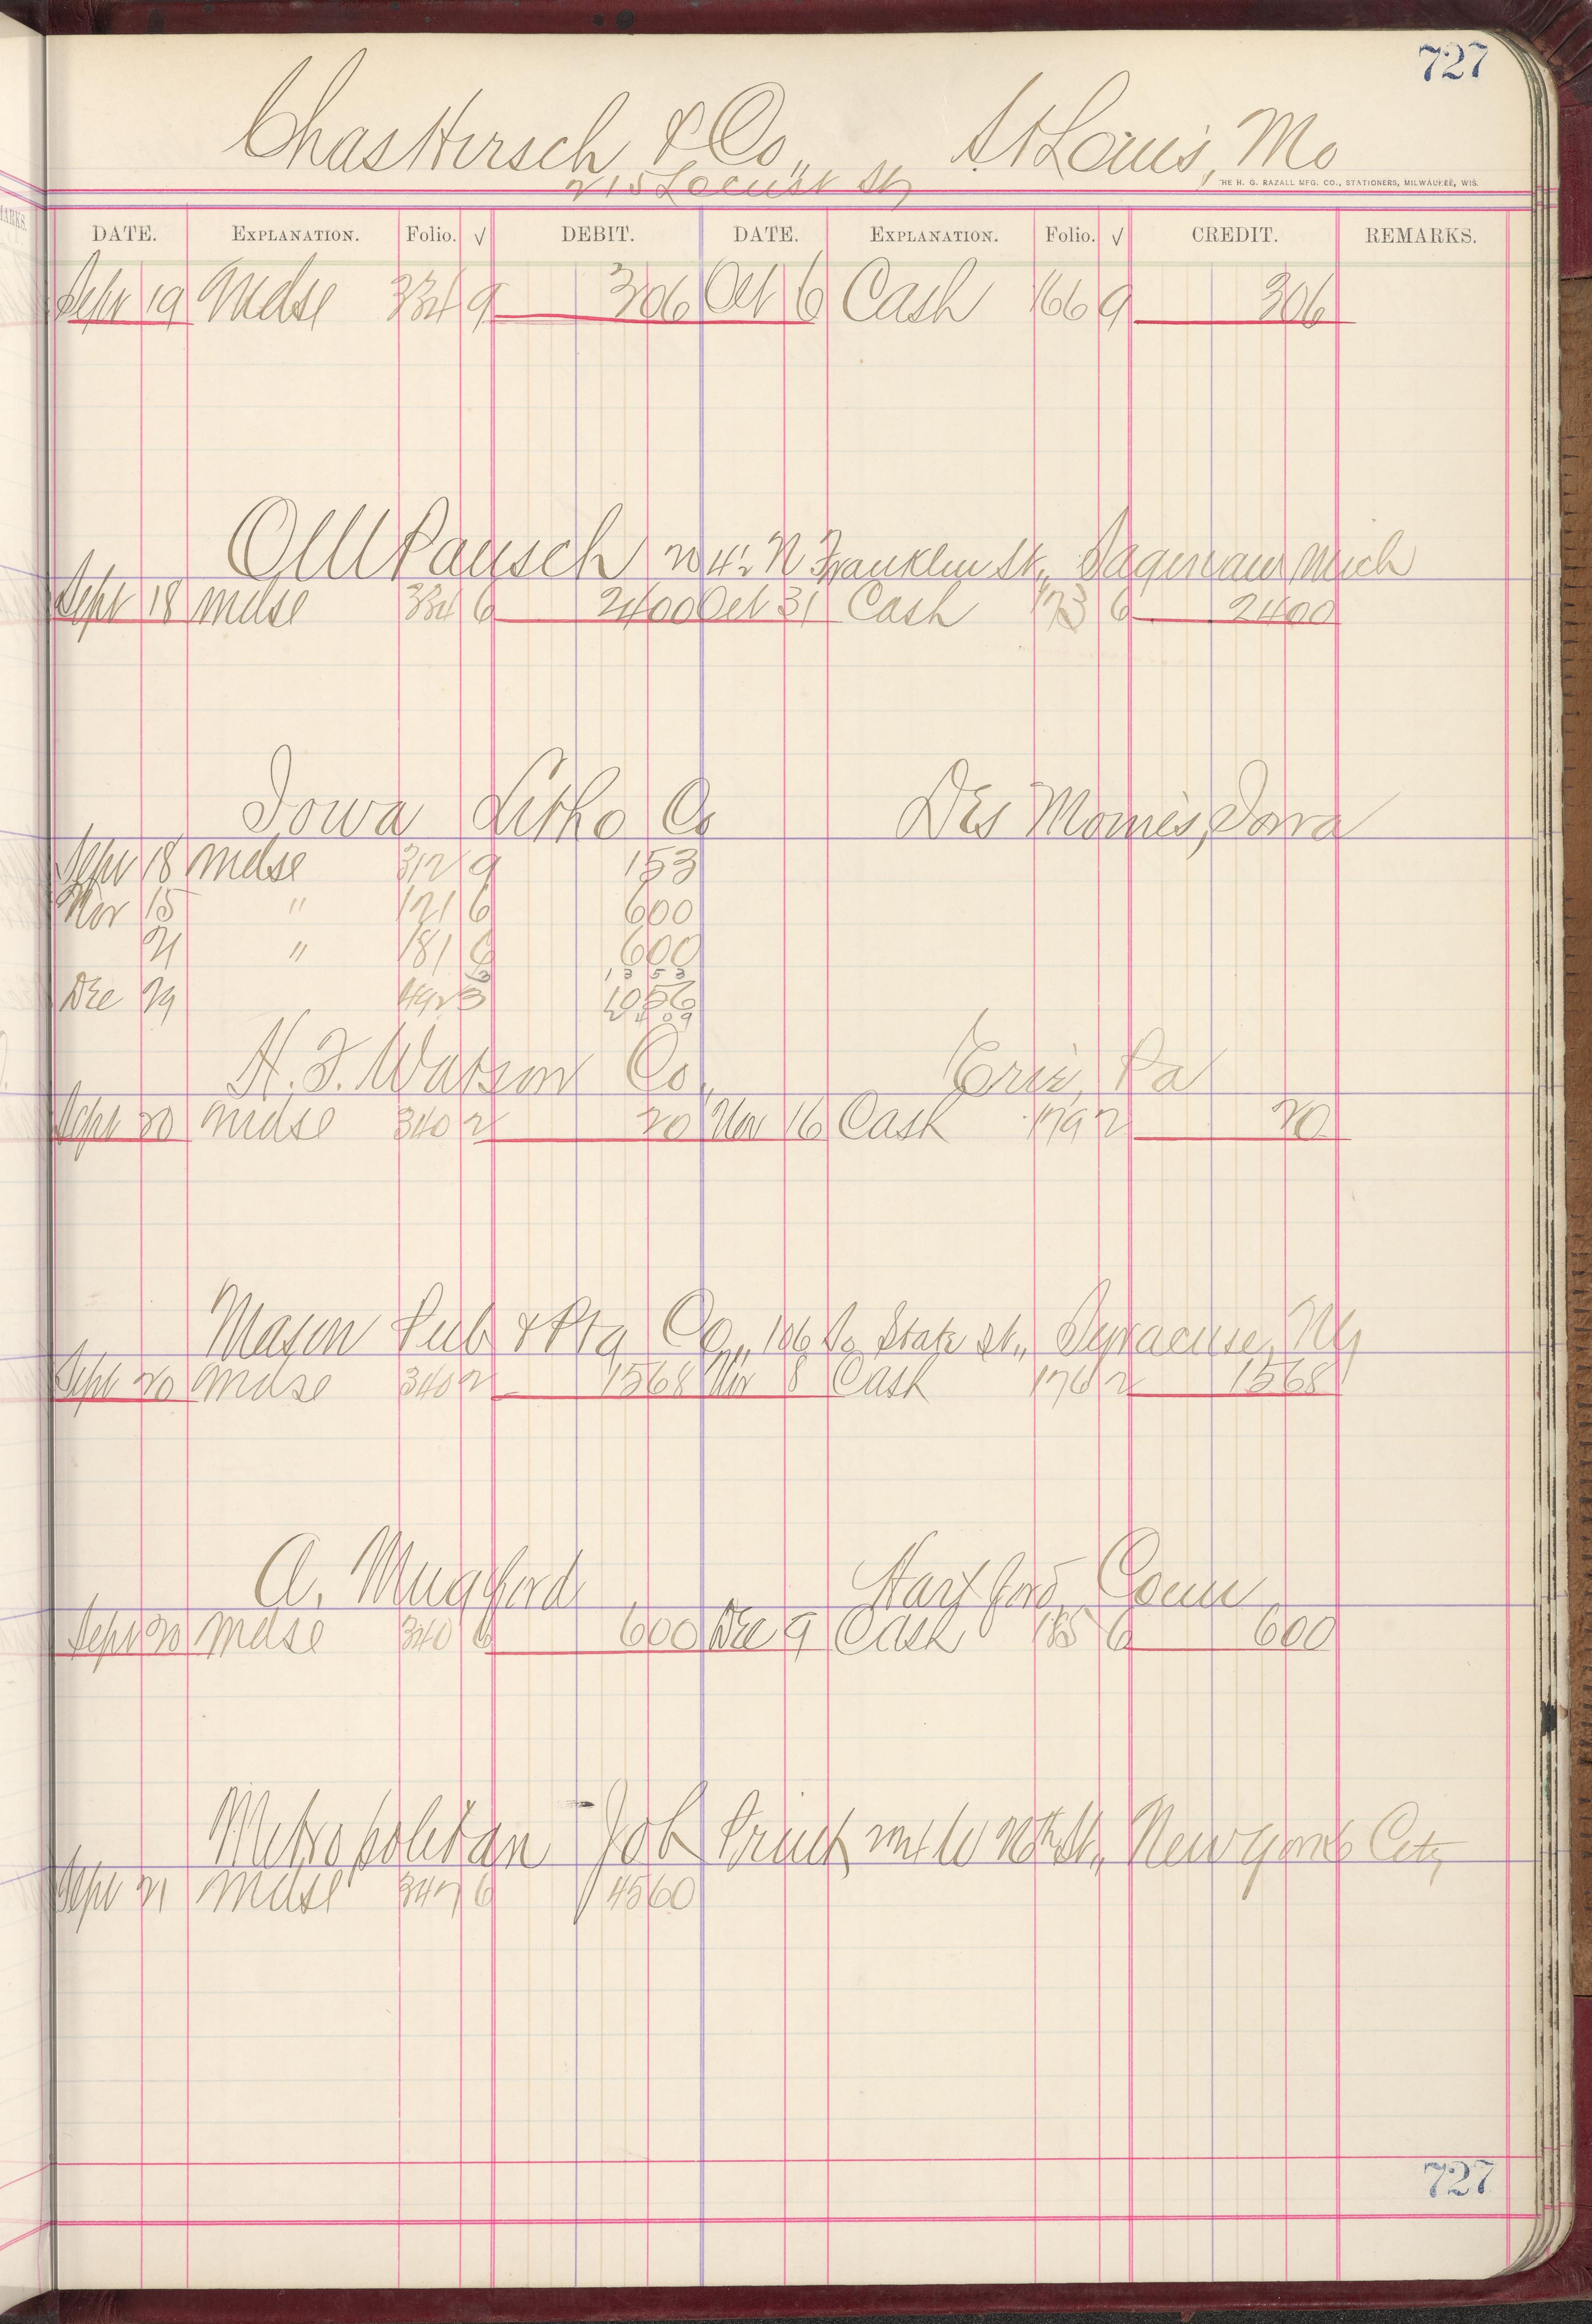 727
Chas Hirsch & Co., St Louis, Mo
215 Locust St
THE H. G. RAZALL MFG. CO., STATIONERS, MILWAUKEE, WIS.
DATE. EXPLANATION. Folio. √ DEBIT. DATE. EXPLANATION. Folio. √ CREDIT. REMARKS.
Sept 19 Mdse 334 9 306 Oct 6 Cash 166 9 306
Pausch N Franklin St., Saginaw Mich
Sept 18 Mdse 334 6 2400 Oct 31 Cash 173 6 2400
Iowa Litho Co Des Moines, Iowa
Sept 18 Mdse 312 9 153
Nov 15 " 121 6 600
21 " 181 6 600
1353
Dec 29 492 3 1056
H. F. Watson Co., Erie, Pa
Sept 20 Mdse 340 2 20 Nov 16 Cash 179 2 20
Mason Pub & Ptg Co., 106 So State St., Syracuse, NY
Sept 20 Mdse 340 2 1568 Nov 8 Cash 176 2 1568
A. Mugford Hartford Conn
Sept 20 Mdse 340 6 600 Dec 9 Cash 185 6 600
Metropolitan Job Print, W St., New York City
Sept 21 Mdse 342 6 4560
727